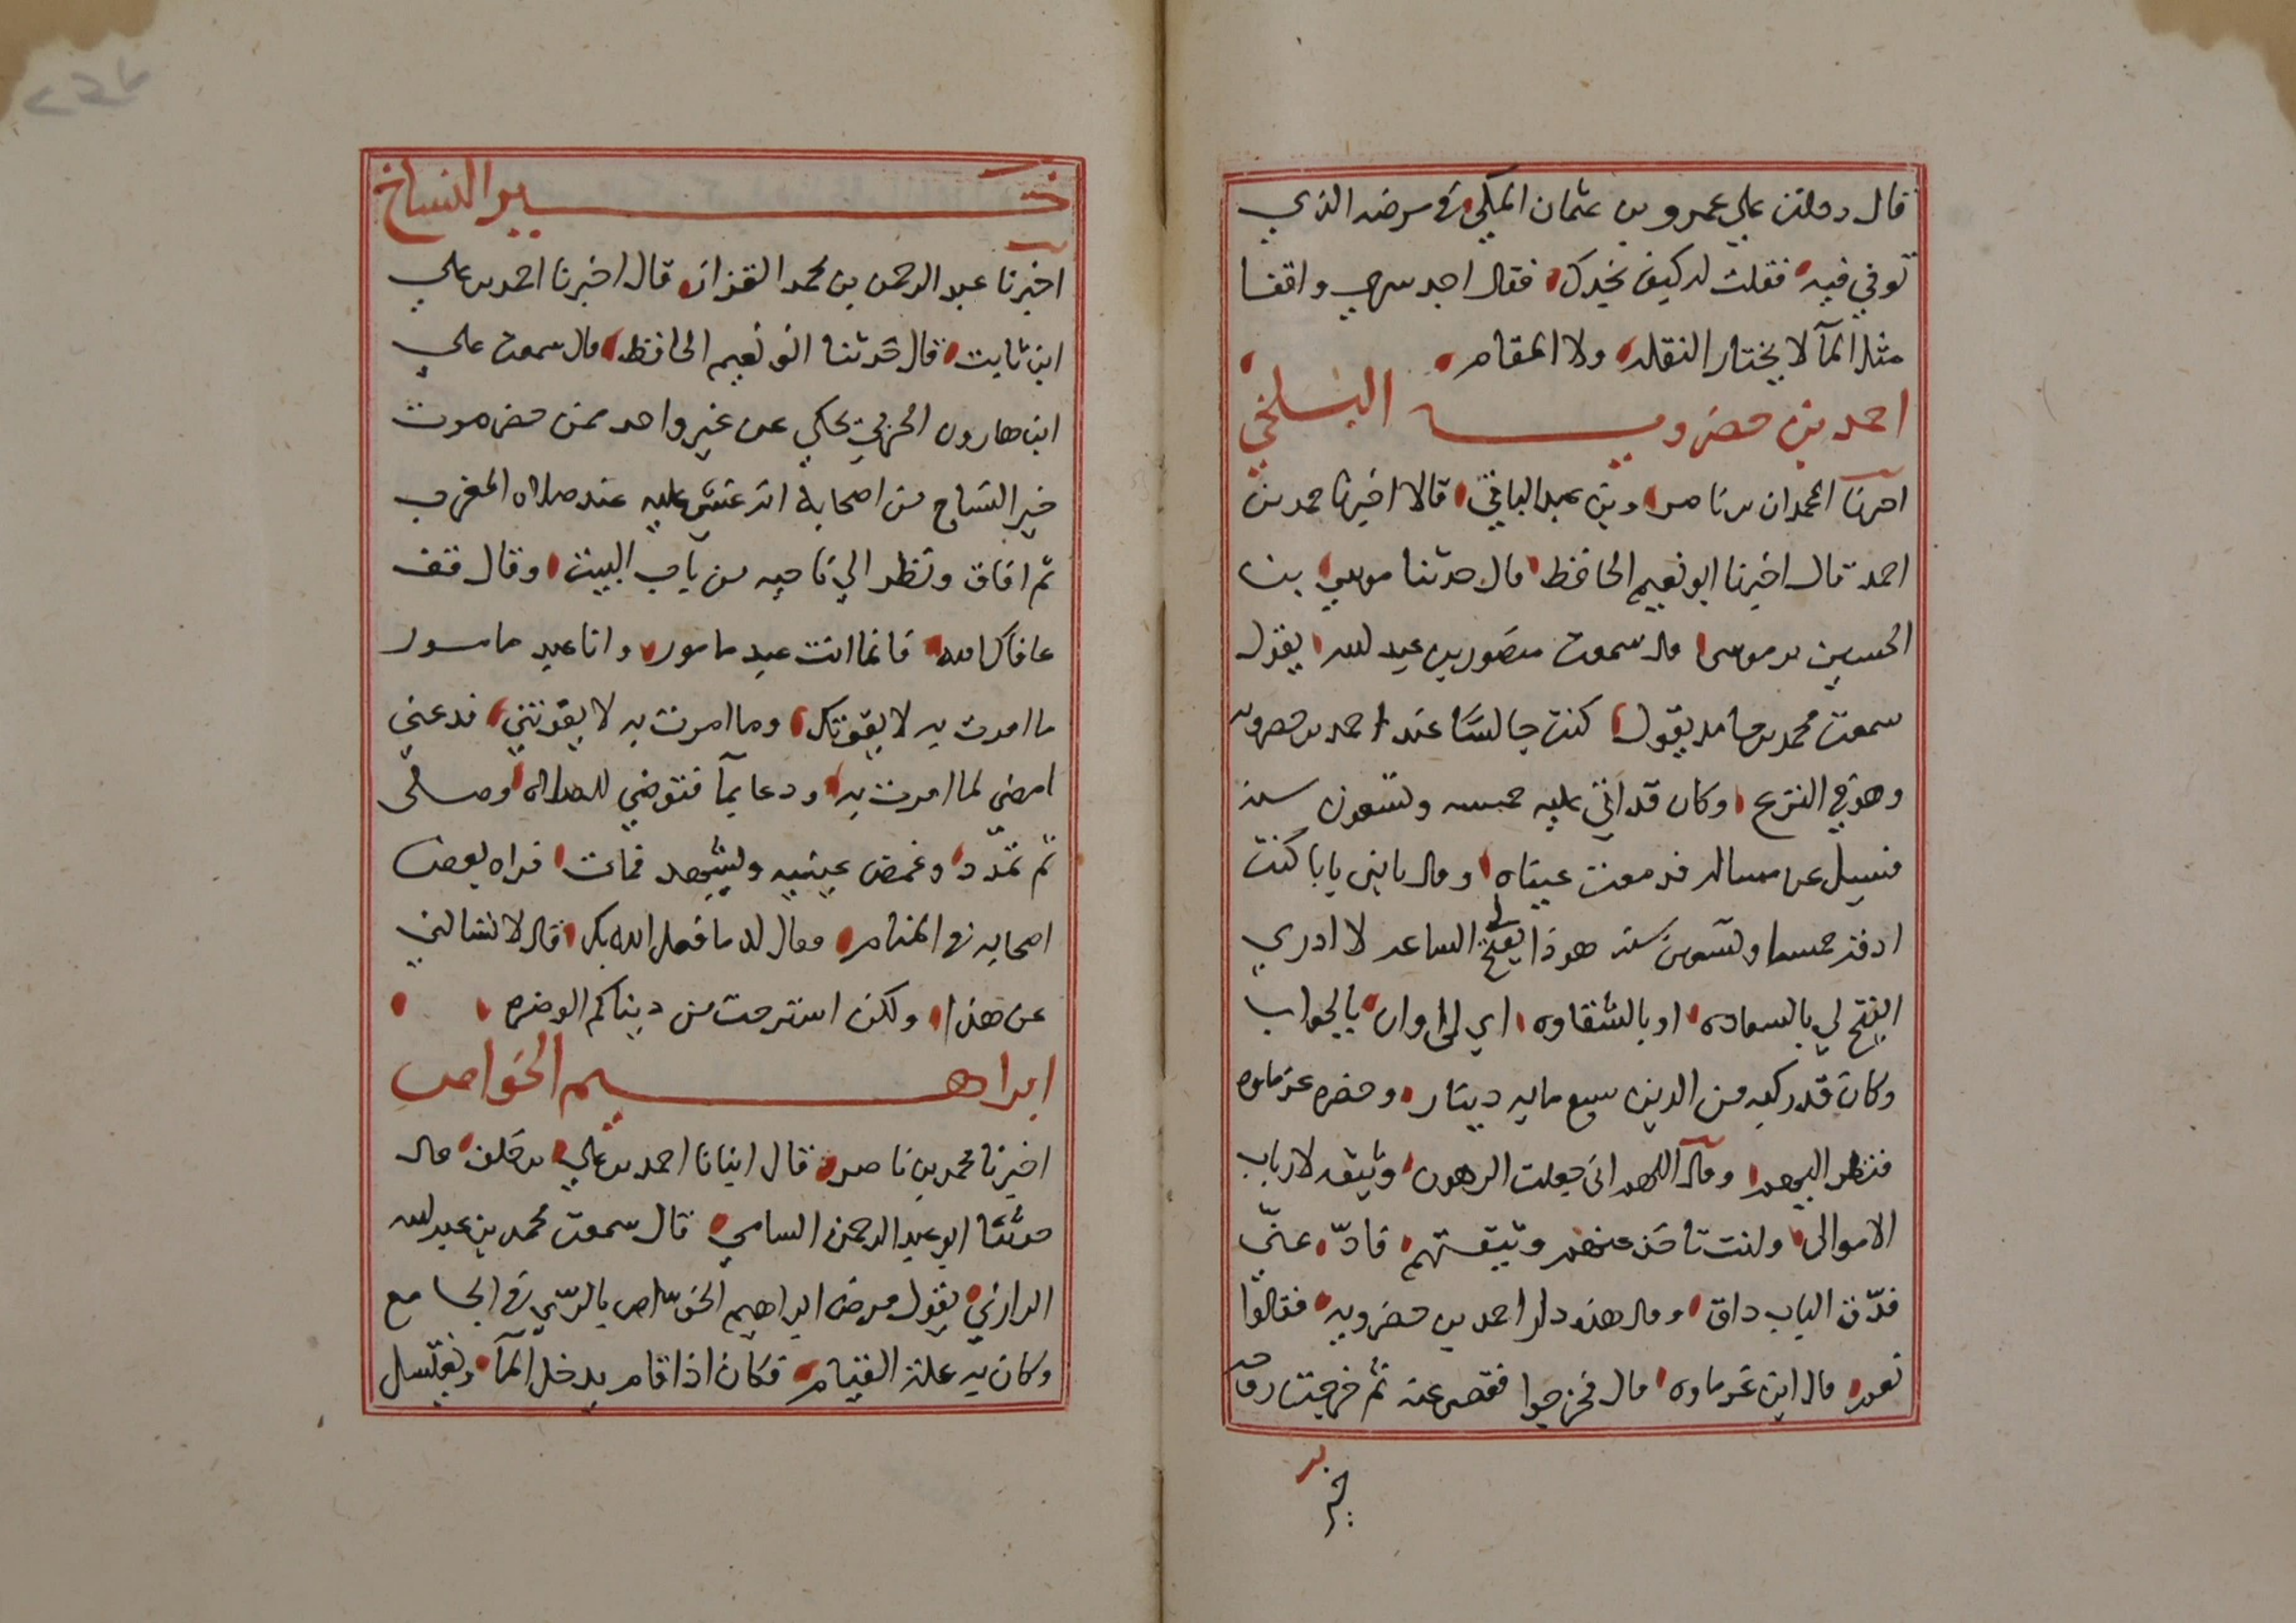 قال دخلت علي عمرو بن عثمان المكي في مرضه الذي
توفي فيه فقلت له كيف تجدك فقال اجد سري واقفا
مثل المآ لا يختار النقله ولا المقام
احمد بن خضرويه البلخي
اخبرنا المحمدان بن ناصر وبن عبد الباقي قالا اخبرنا حمد بن
احمد قال اخبرنا ابو نعيم الحافظ قال حدثنا موسي بن
الحسين بن موسى قال سمعت منصور بن عبد الله يقول
سمعت محمد بن حامد يقول كنت جالسا عند احمد بن خضرويه
وهو في النزع وكان قد اتي عليه خمسه وتسعون سنه
فسيل عن مساله فدمعت عيناه وقال يا بني بابا كنت
ادقه خمسا وتسعين سنه هوذا يفتح لي الساعه لا ادري
ايفتح لي بالسعاده او بالشقاوه اي لي اوان بالجواب
وكان قد ركبه من الدين سبع مايه دينار وحضره غرماوه
فنظر اليهم وقال اللهم اني جعلت الرهون وثيقه لارباب
الاموال وانت تاخذ عنهم وثيقتهم فادّ عنّي
فدّق الباب داق وقال هذه دار احمد بن خضرويه فقالوا
نعم قال اين غرماوه قال فخرجوا فقضى عنه ثم خرجت روحه
خير
خير النساج
اخبرنا عبد الرحمن بن محمد القزاز قال اخبرنا احمد بن علي
ابن ثابت قال حدثنا ابو نعيم الحافظ قال سمعت علي
ابن هارون الحربي يحكي عن غير واحد ممن حضر موت
خير النساج من اصحابه انه غشي عليه عند صلاه المغرب
ثم افاق ونظر الي ناحيه من باب البيت وقال قف
عافاك الله فانما انت عبد مامور وانا عبد مامور
ما امرت به لا يفوتك وما امرت به لا يفوتني فدعني
امضي لما امرت به ودعا بمآ فتوضي للصلاه وصلى
ثم تمدّد وغمض عينيه وليتشهد فمات فراه بعض
اصحابه في المنام فقال له ما فعل الله بك قال لا تسالني
عن هذا ولكن استرحت من دنياكم الوضره
ابراهيم الخواص
اخبرنا محمد بن ناصر قال انبانا احمد بن علي بن خلف قال
حدثنا ابو عبد الرحمن السلمي قال سمعت محمد بن عبد الله
الرازي يقول مرض ابراهيم الخواص بالرّي في الجامع
وكان به علة القيام فكان اذا قام يدخل المآ ويغتسل